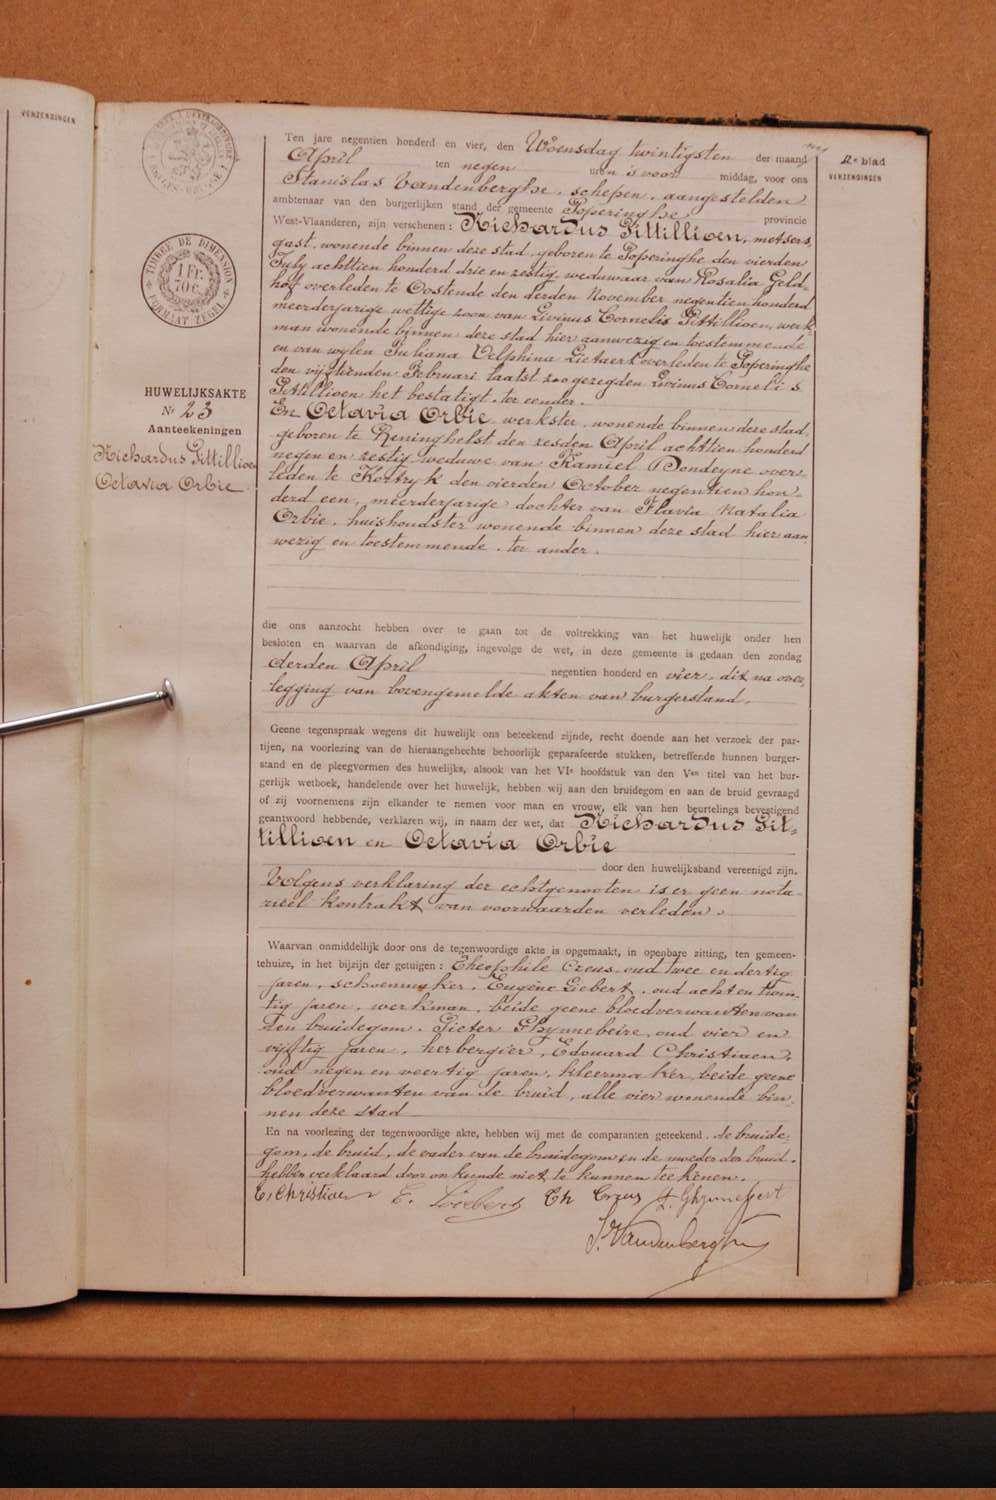 VERZENDINGEN
TIMBRE DE DIMENSION
1 Fr.
70 c.
FORMAAT ZEGEL
HUWELIJKSAKTE
No 23
Aanteekeningen
Richardus Pittillioen
Octavia Orbie
2e blad
VERZENDINGEN
Ten jare negentien honderd en vier, den Woensdag twintigsten der maand
April ten negen uren is voor middag, voor ons
Stanislas Vandenberghe, schepen, aangestelden
ambtenaar van den burgerlijken stand der gemeente Poperinghe provincie
West-Vlaanderen, zijn verschenen: Richardus Pittillioen, metsers
gast, wonende binnen deze stad, geboren te Poperinghe den vierden
July achttien honderd drie en zestig, weduwaar van Rosalia Geld-
hof overleden te Oostende den derden November negentien honderd
meerderjarige wettige zoon van Livinus Cornelis Pittillioen, werk-
man wonende binnen deze stad hier aanwezig en toestemmende
en van wylen Juliana Delphina Lietaert overleden te Poperinghe
den vijftienden Februari laatst zoo gezegden Livinus Cornelis
Pittillioen het bestatigt, ter eender.
En Octavia Orbie, werkster, wonende binnen deze stad,
geboren te Reninghelst den zesden April achttien honderd
negen en zestig, weduwe van Kamiel Dendeyne over-
leden te Kortryk den vierden October negentien hon-
derd een, meerderjarige dochter van Flavia Natalia
Orbie, huishoudster wonende binnen deze stad hier aan
wezig en toestemmende, ter ander.
die ons aanzocht hebben over te gaan tot de voltrekking van het huwelijk onder hen
besloten en waarvan de afkondiging, ingevolge de wet, in deze gemeente is gedaan den zondag
derden April negentien honderd en vier, dit na over-
legging van bovengemelde akten van burgerstand.
Geene tegenspraak wegens dit huwelijk ons beteekend zijnde, recht doende aan het verzoek der par-
tijen, na voorlezing van de hieraangehechte behoorlijk geparafeerde stukken, betreffende hunnen burger-
stand en de pleegvormen des huwelijks, alsook van het VIe hoofdstuk van den Ven titel van het bur-
gerlijk wetboek, handelende over het huwelijk, hebben wij aan den bruidegom en aan de bruid gevraagd
of zij voornemens zijn elkander te nemen voor man en vrouw, elk van hen beurtelings bevestigend
geantwoord hebbende, verklaren wij, in naam der wet, dat Richardus Pit-
tillioen en Octavia Orbie
door den huwelijksband vereenigd zijn.
Volgens verklaring der echtgenooten is er geen nota-
rieel kontrakt van voorwaarden verleden.
Waarvan onmiddellijk door ons de tegenwoordige akte is opgemaakt, in openbare zitting, ten gemeen-
tehuize, in het bijzijn der getuigen: Theophile Creus, oud twee en dertig
jaren, schoenmaker, Eugène Liebert, oud acht en twin-
tig jaren, werkman, beide geene bloedverwanten van
den bruidegom, Pieter Ghynnebeire, oud vier en
vijftig jaren, herbergier, Edouard Christiaen,
oud negen en veertig jaren, kleermaker, beide geene
bloedverwanten van de bruid, alle vier wonende bin-
nen deze stad
En na voorlezing der tegenwoordige akte, hebben wij met de comparanten geteekend, de bruide-
gom, de bruid, de vader van de bruidegom en de moeder der bruid,
hebben verklaard door onkunde niet te kunnen teekenen.
E. Christiaen E. Liebert Th Creus
S. Vandenberghe